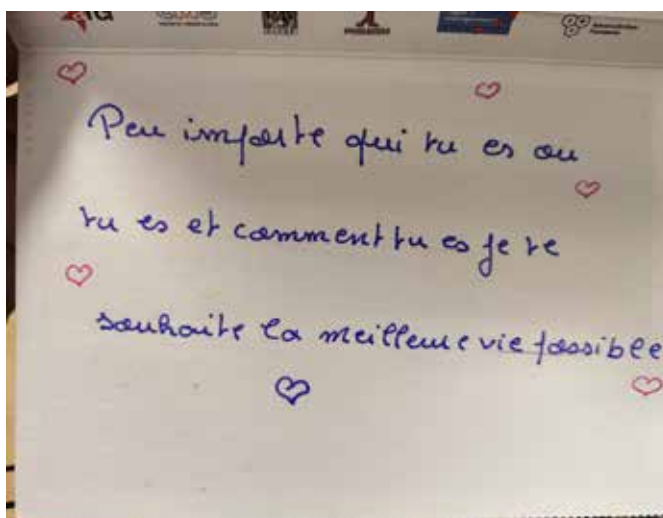 Peu importe qui tu es ou
tu es et comment tu es je te
souhaite la meilleure vie possible